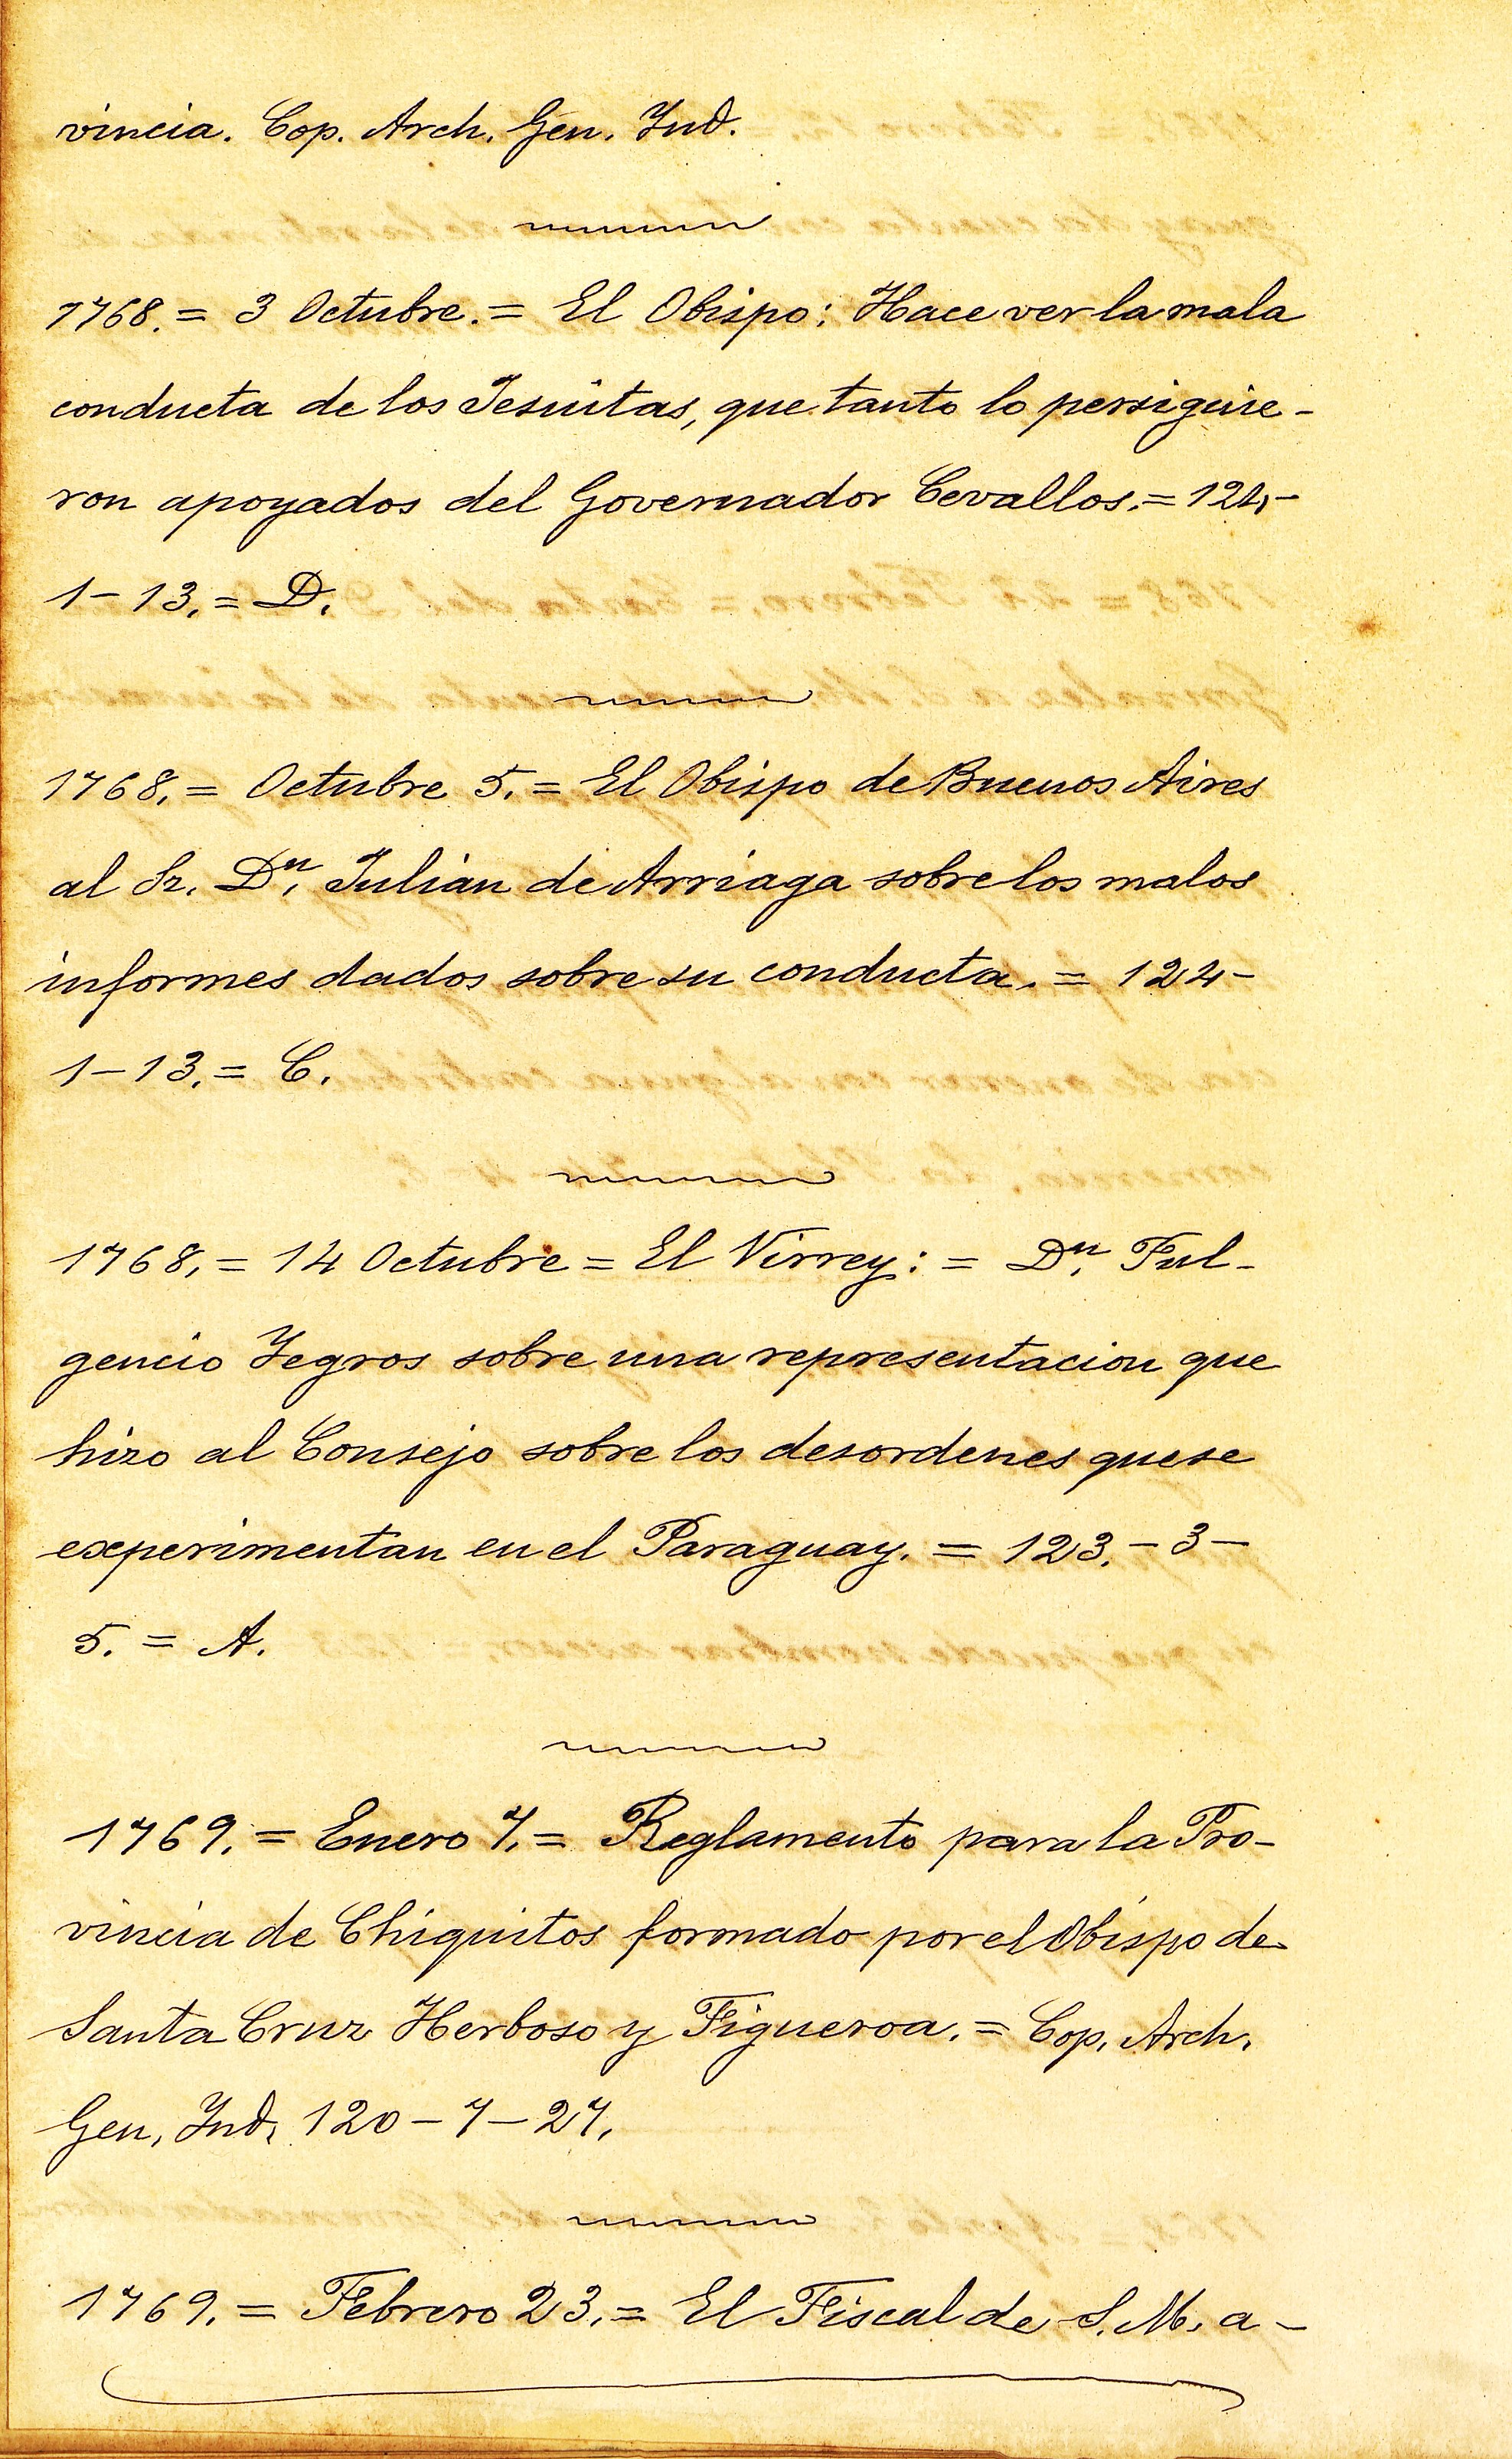 vincia. Cop. Arch. Gen. Ind.
1768. = 3 Octubre. = El Obispo: Hace ver la mala
conducta de los Jesuitas, que tanto lo persiguie-
ron apoyados del Governador Cevallos. = 124-
1-13. = D.
1768. = Octubre 5. = El Obispo de Buenos Aires
al Sr. Dn. Julian de Arriaga sobre los malos
informes dados sobre su conducta. = 124-
1-13. = C.
1768. = 14 Octubre = El Virrey: = Dn. Ful-
gencio Yegros sobre una representacion que
hizo al Consejo sobre los desordenes que se
experimentan en el Paraguay. = 123. - 3 -
5. = A.
1769. = Enero 7. = Reglamento para la Pro-
vincia de Chiquitos formado por el Obispo de
Santa Cruz Herboso y Figueroa. = Cop. Arch.
Gen. Ind. 120 - 7 - 27.
1769. = Febrero 23. = El Fiscal de S. M. a-